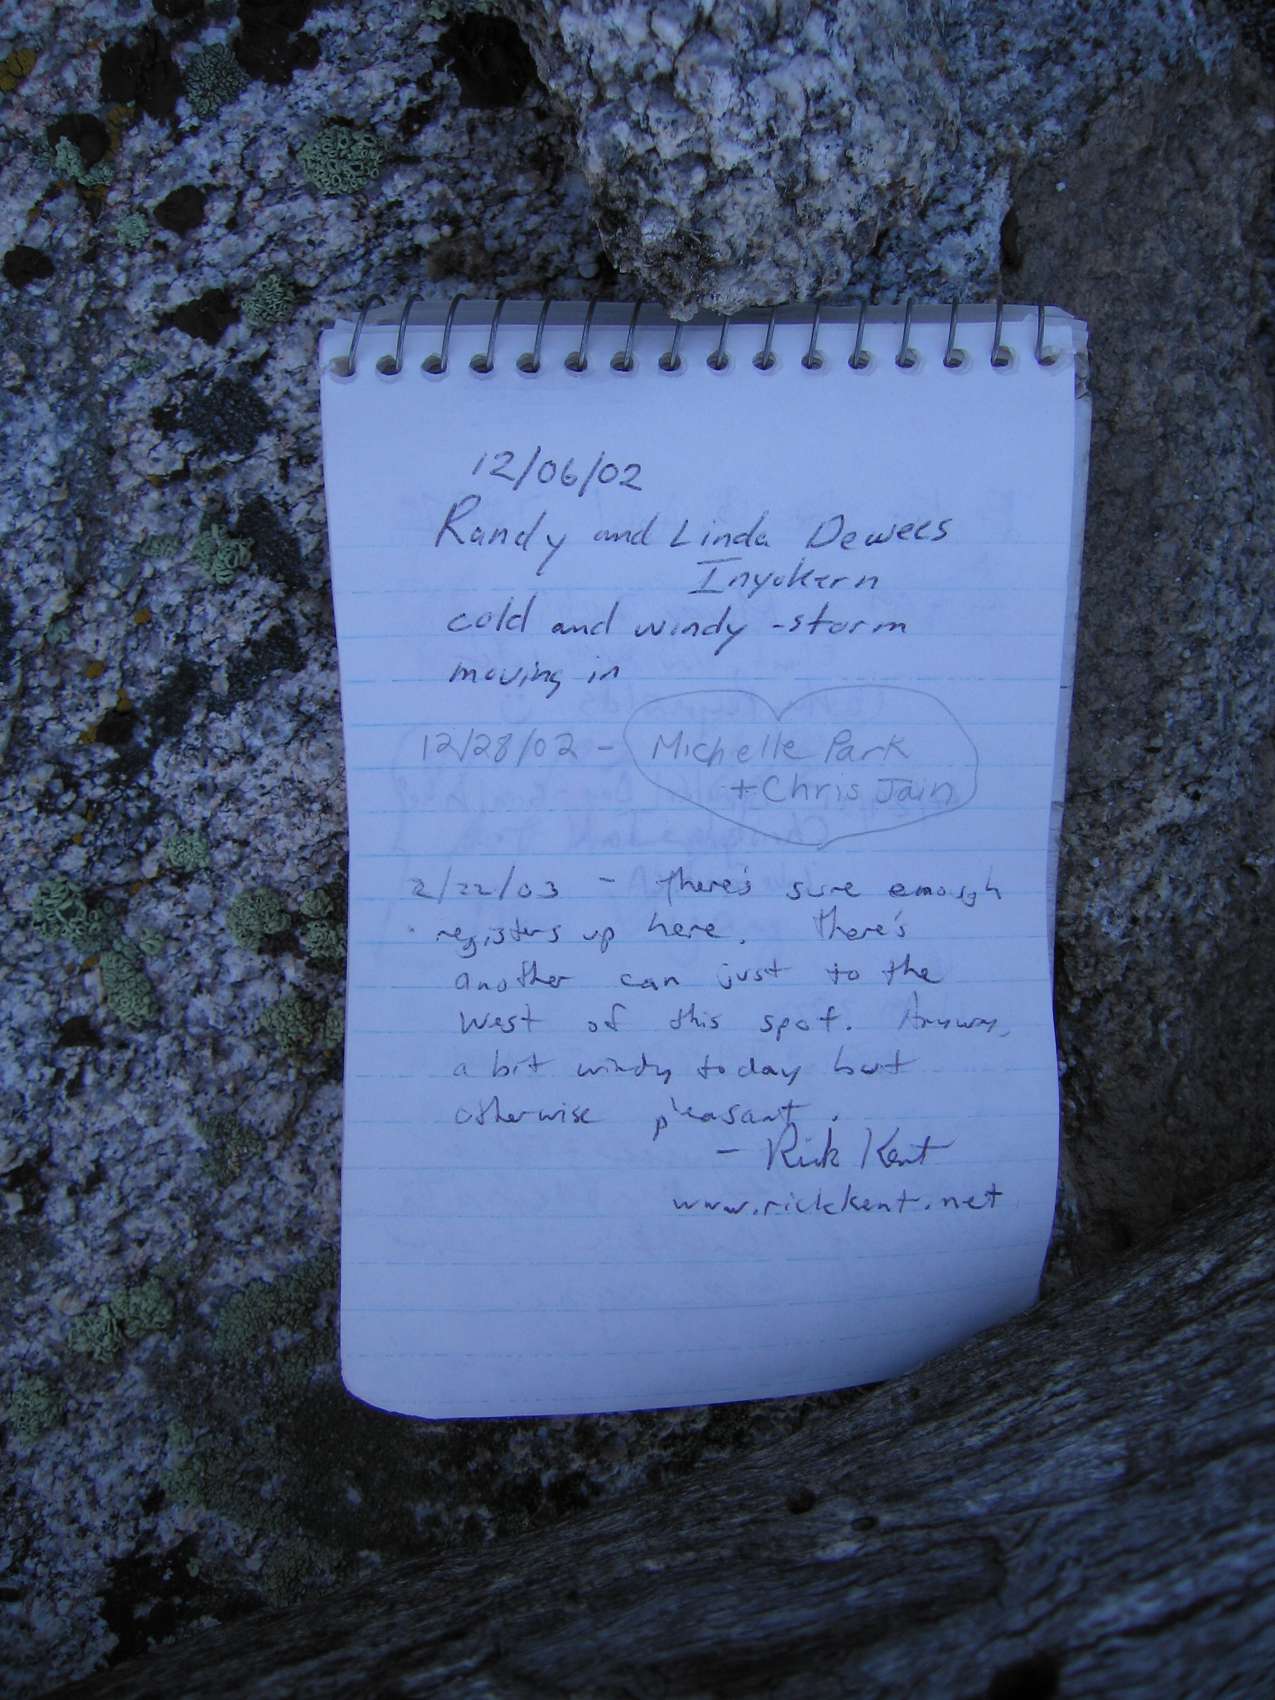 12/06/02
Randy and Linda Dewees
Inyokern
cold and windy - storm
moving in
12/28/02 - Michelle Park
+ Chris Jain
2/22/03 - there's sure enough
registers up here. There's
another can just to the
west of this spot. Anyway,
a bit windy today but
otherwise pleasant.
- Rick Kent
www.rickkent.net